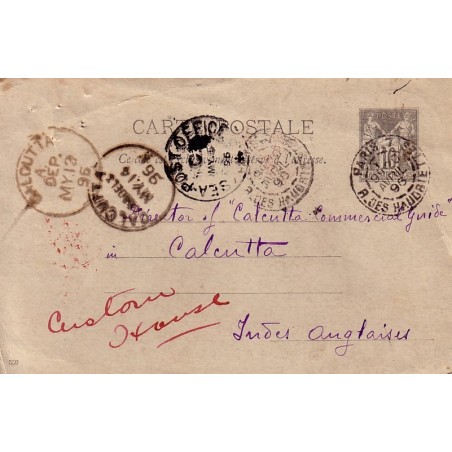 CARTE POSTALE
Ce côté est exclusivement réservé à l'adresse.
CALCUTTA
A
DEP.
MY.13
96
CALCUTTA
MY.14
96
SEA-POST OFFICE
PARIS
R. DES HAUDRIETTES
PARIS
R. DES HAUDRIETTES
10
Director of "Calcutta Commercial Guide"
in
Calcutta
Custom
House
Indes Anglaises